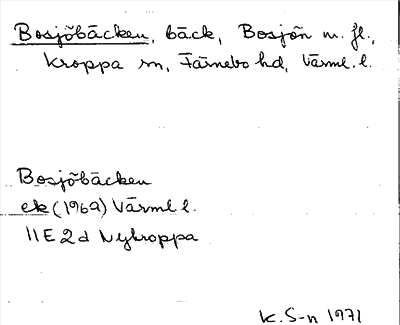 Bosjöbäcken, bäck, Bosjön m. fl.,
Kroppa sn, Färnebo hd, Värml. l.
Bosjöbäcken
ek (1969) Värml l.
11E 2d Nykroppa
K. S-n 1971